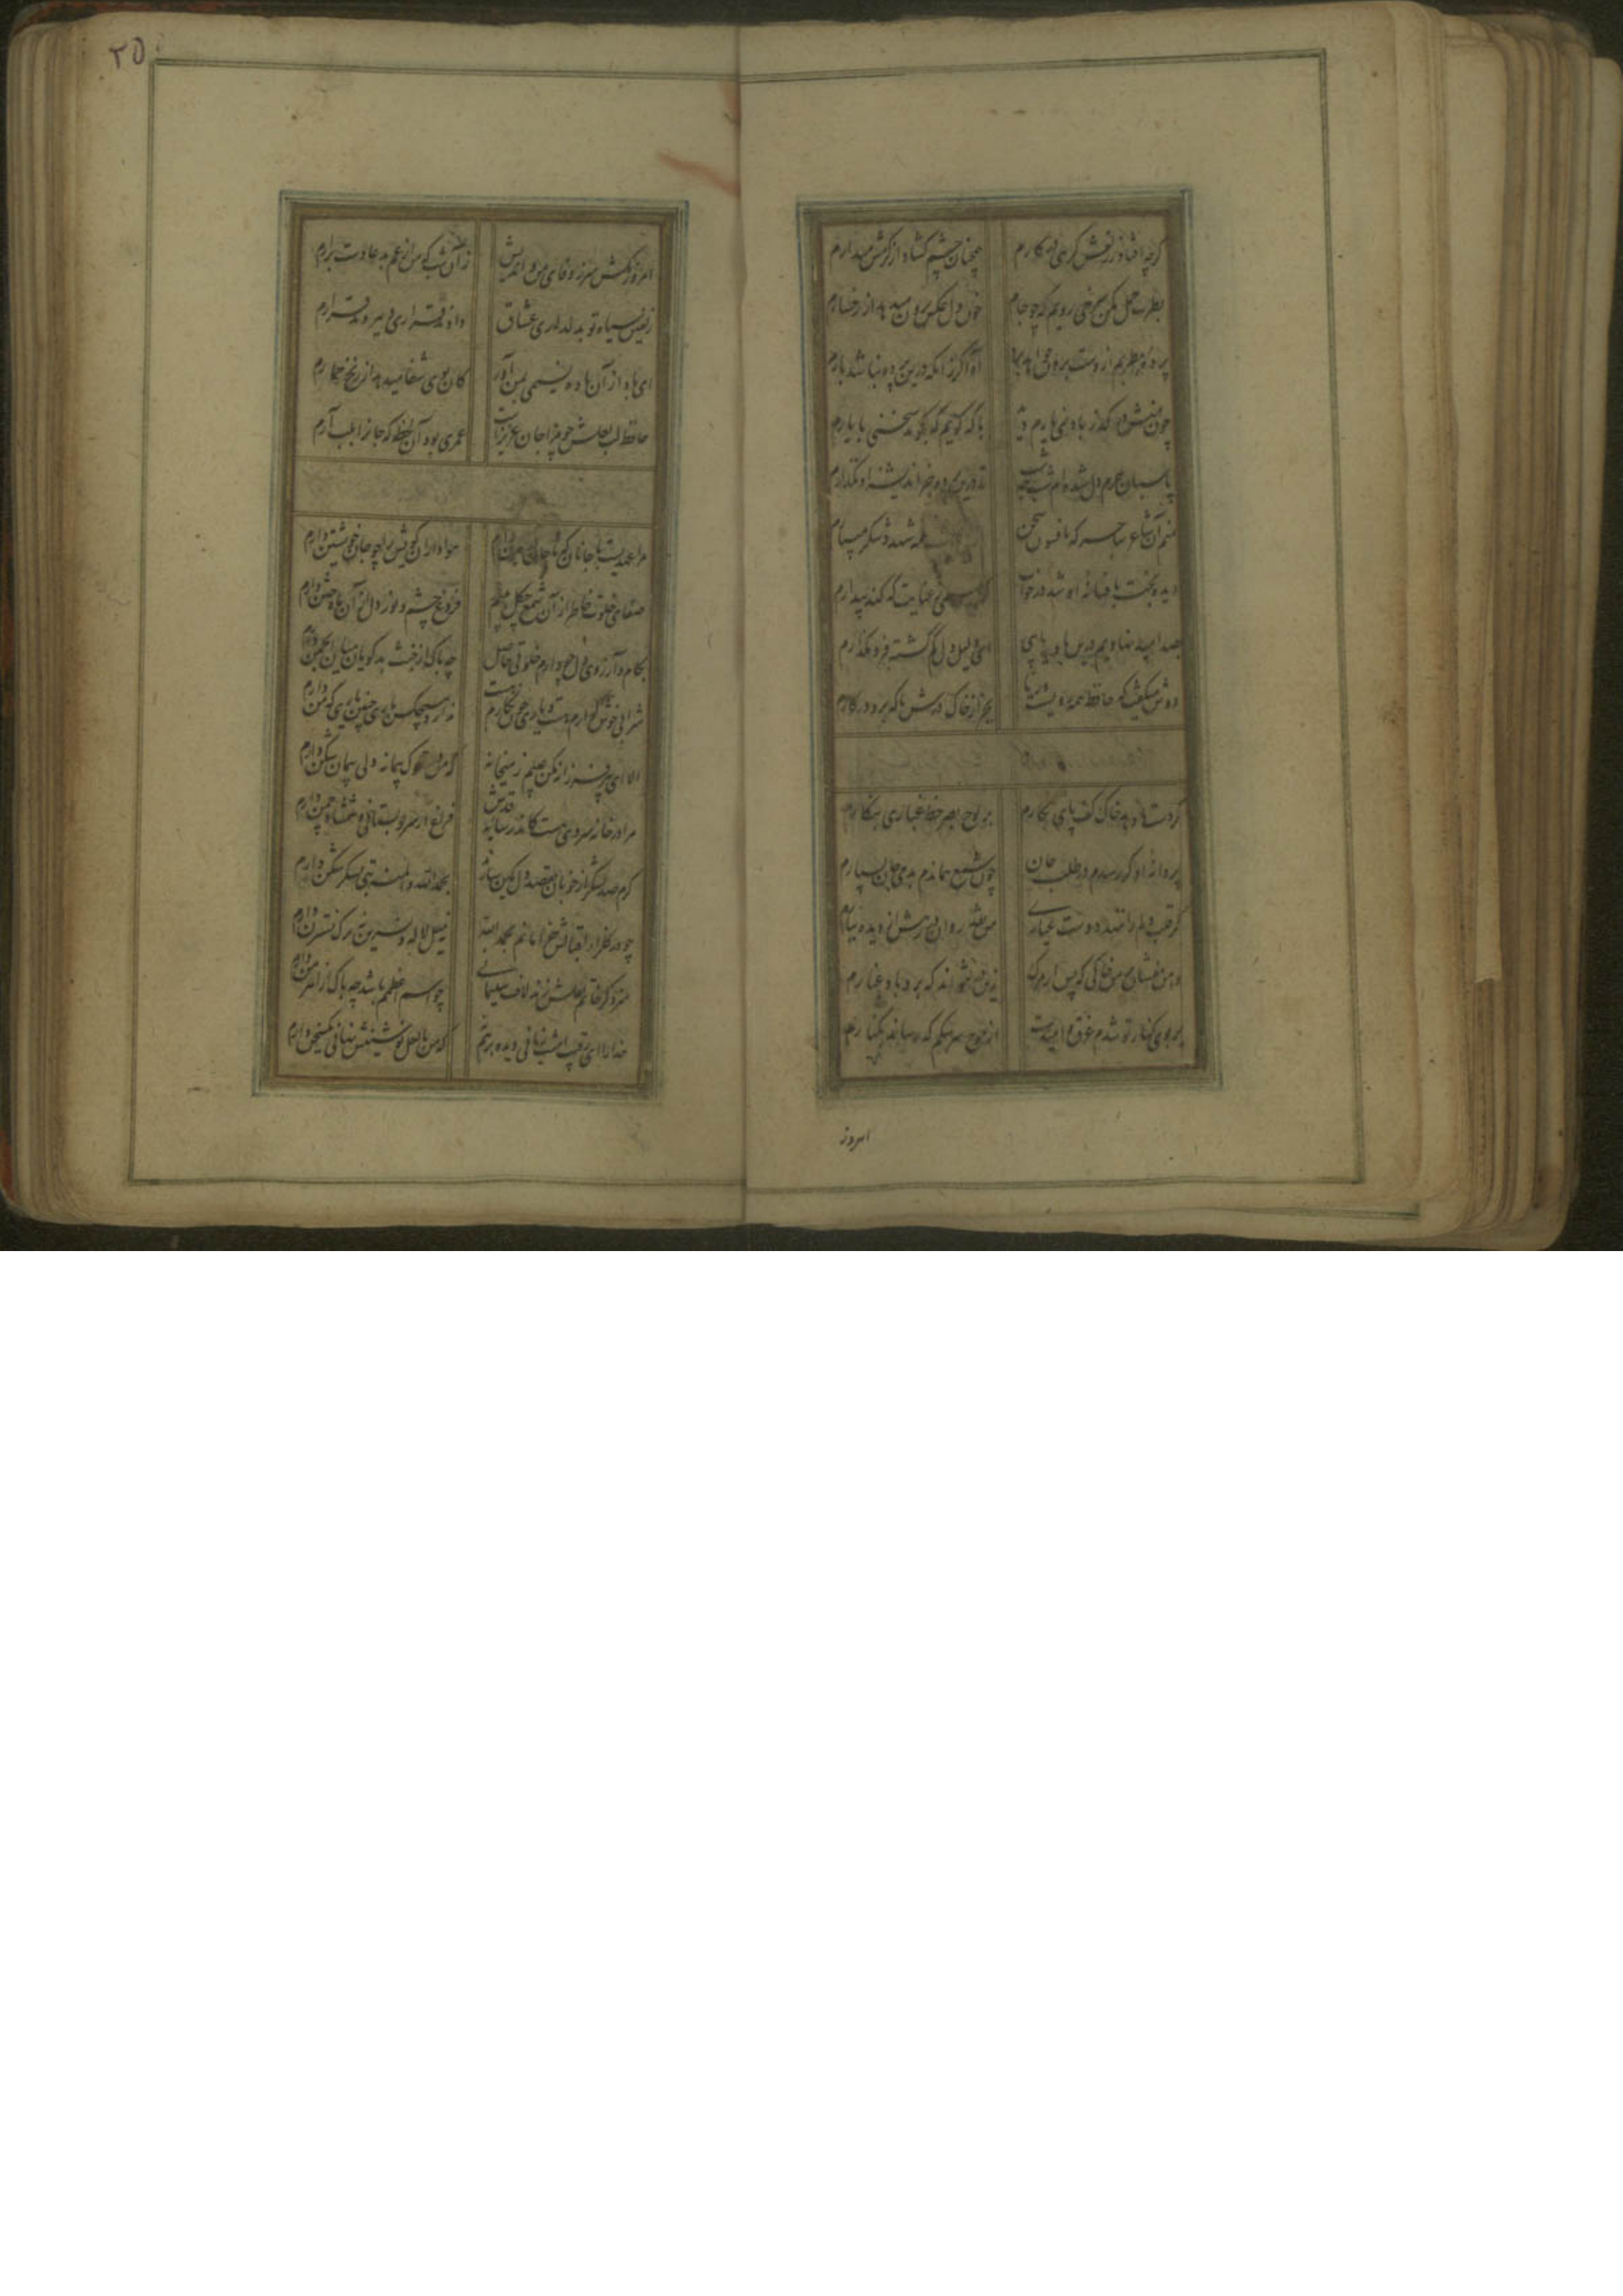 ۲۵
گرچه افتاد ز زلفش گرهی در کارم
همچنان چشم گشاد از کرمش میدارم
بطرب حمل مکن سرخی رویم که چو جام
خون دل عکس برون میدهد از رخسارم
پرده مطربم از دست برون خواهد برد
آه اگر زانکه درین پرده نباشد بارم
با که گویم که بگوید سخنی با یارم
پاسبان حرم دل شده‌ام شب همه شب
تا درین پرده جز اندیشه او نگذارم
منم آن شاعر ساحر که بافسون سخن
شهد و شکر میبارم
دیده بخت بافسانه او شد در خواب
عنایت که کند بیدارم
بصد امید نهادیم درین بادیه پای
ای دلیل دل گم گشته فرو نگذارم
دوش میگفت که حافظ همه رویست و ریا
بجز از خاک درش با که بود در کارم
گر دست دهد خاک کف پای نگارم
بر لوح بصر خط غباری بنگارم
پروانه او گر رسدم در طلب جان
چون شمع هماندم بدمی جان بسپارم
گر قلب دلم را ننهد دوست عیاری
من نقد روان در رهش از دیده ببارم
دامن مفشان از من خاکی که پس از مرگ
زین در نتواند که برد باد غبارم
بر بوی کنار تو شدم غرق و امیدست
از موج سرشکم که رساند بکنارم
امروز
امروز مکش سر ز وفای من و اندیش
زان شب که من از غم بدعا دست برآرم
زلفین سیاه تو بدلداری عشاق
دادند قراری و ببردند قرارم
ای باد از آن باده نسیمی بمن آور
کان بوی شفا میدهد از رنج خمارم
حافظ لب لعلش چو مرا جان عزیزست
عمری بود آن لحظه که جانرا بلب آرم
مرا عهدیست با جانان که تا جان در بدن دارم
هواداران کویش را چو جان خویشتن دارم
صفای خلوت خاطر از آن شمع چگل بینم
فروغ چشم و نور دل از آن ماه ختن دارم
بکام و آرزوی دل چو دارم خلوتی حاصل
چه باک از خبث بدگویان میان انجمن دارم
شرابی خوشگوارم هست و یاری چون نگارم نیست
ندارد هیچکس باری چنین یاری که من دارم
الا ای پیر فرزانه مکن عیبم ز میخانه
که من در ترک پیمانه دلی پیمان شکن دارم
مرا در خانه سروی هست کاندر سایه قدش
فراغ از سرو بستانی و شمشاد چمن دارم
گرم صد لشکر از خوبان بقصد دل کمین سازند
بحمدالله و المنه بتی لشکر شکن دارم
چو در گلزار اقبالش خرامانم بحمدالله
نه میل لاله و نسرین نه برگ نسترن دارم
سزد کز خاتم لعلش زنم لاف سلیمانی
چو اسم اعظمم باشد چه باک از اهرمن دارم
خدا را ای رقیب امشب زمانی دیده بر هم نه
که من با لعل نوشینش نهانی یکسخن دارم